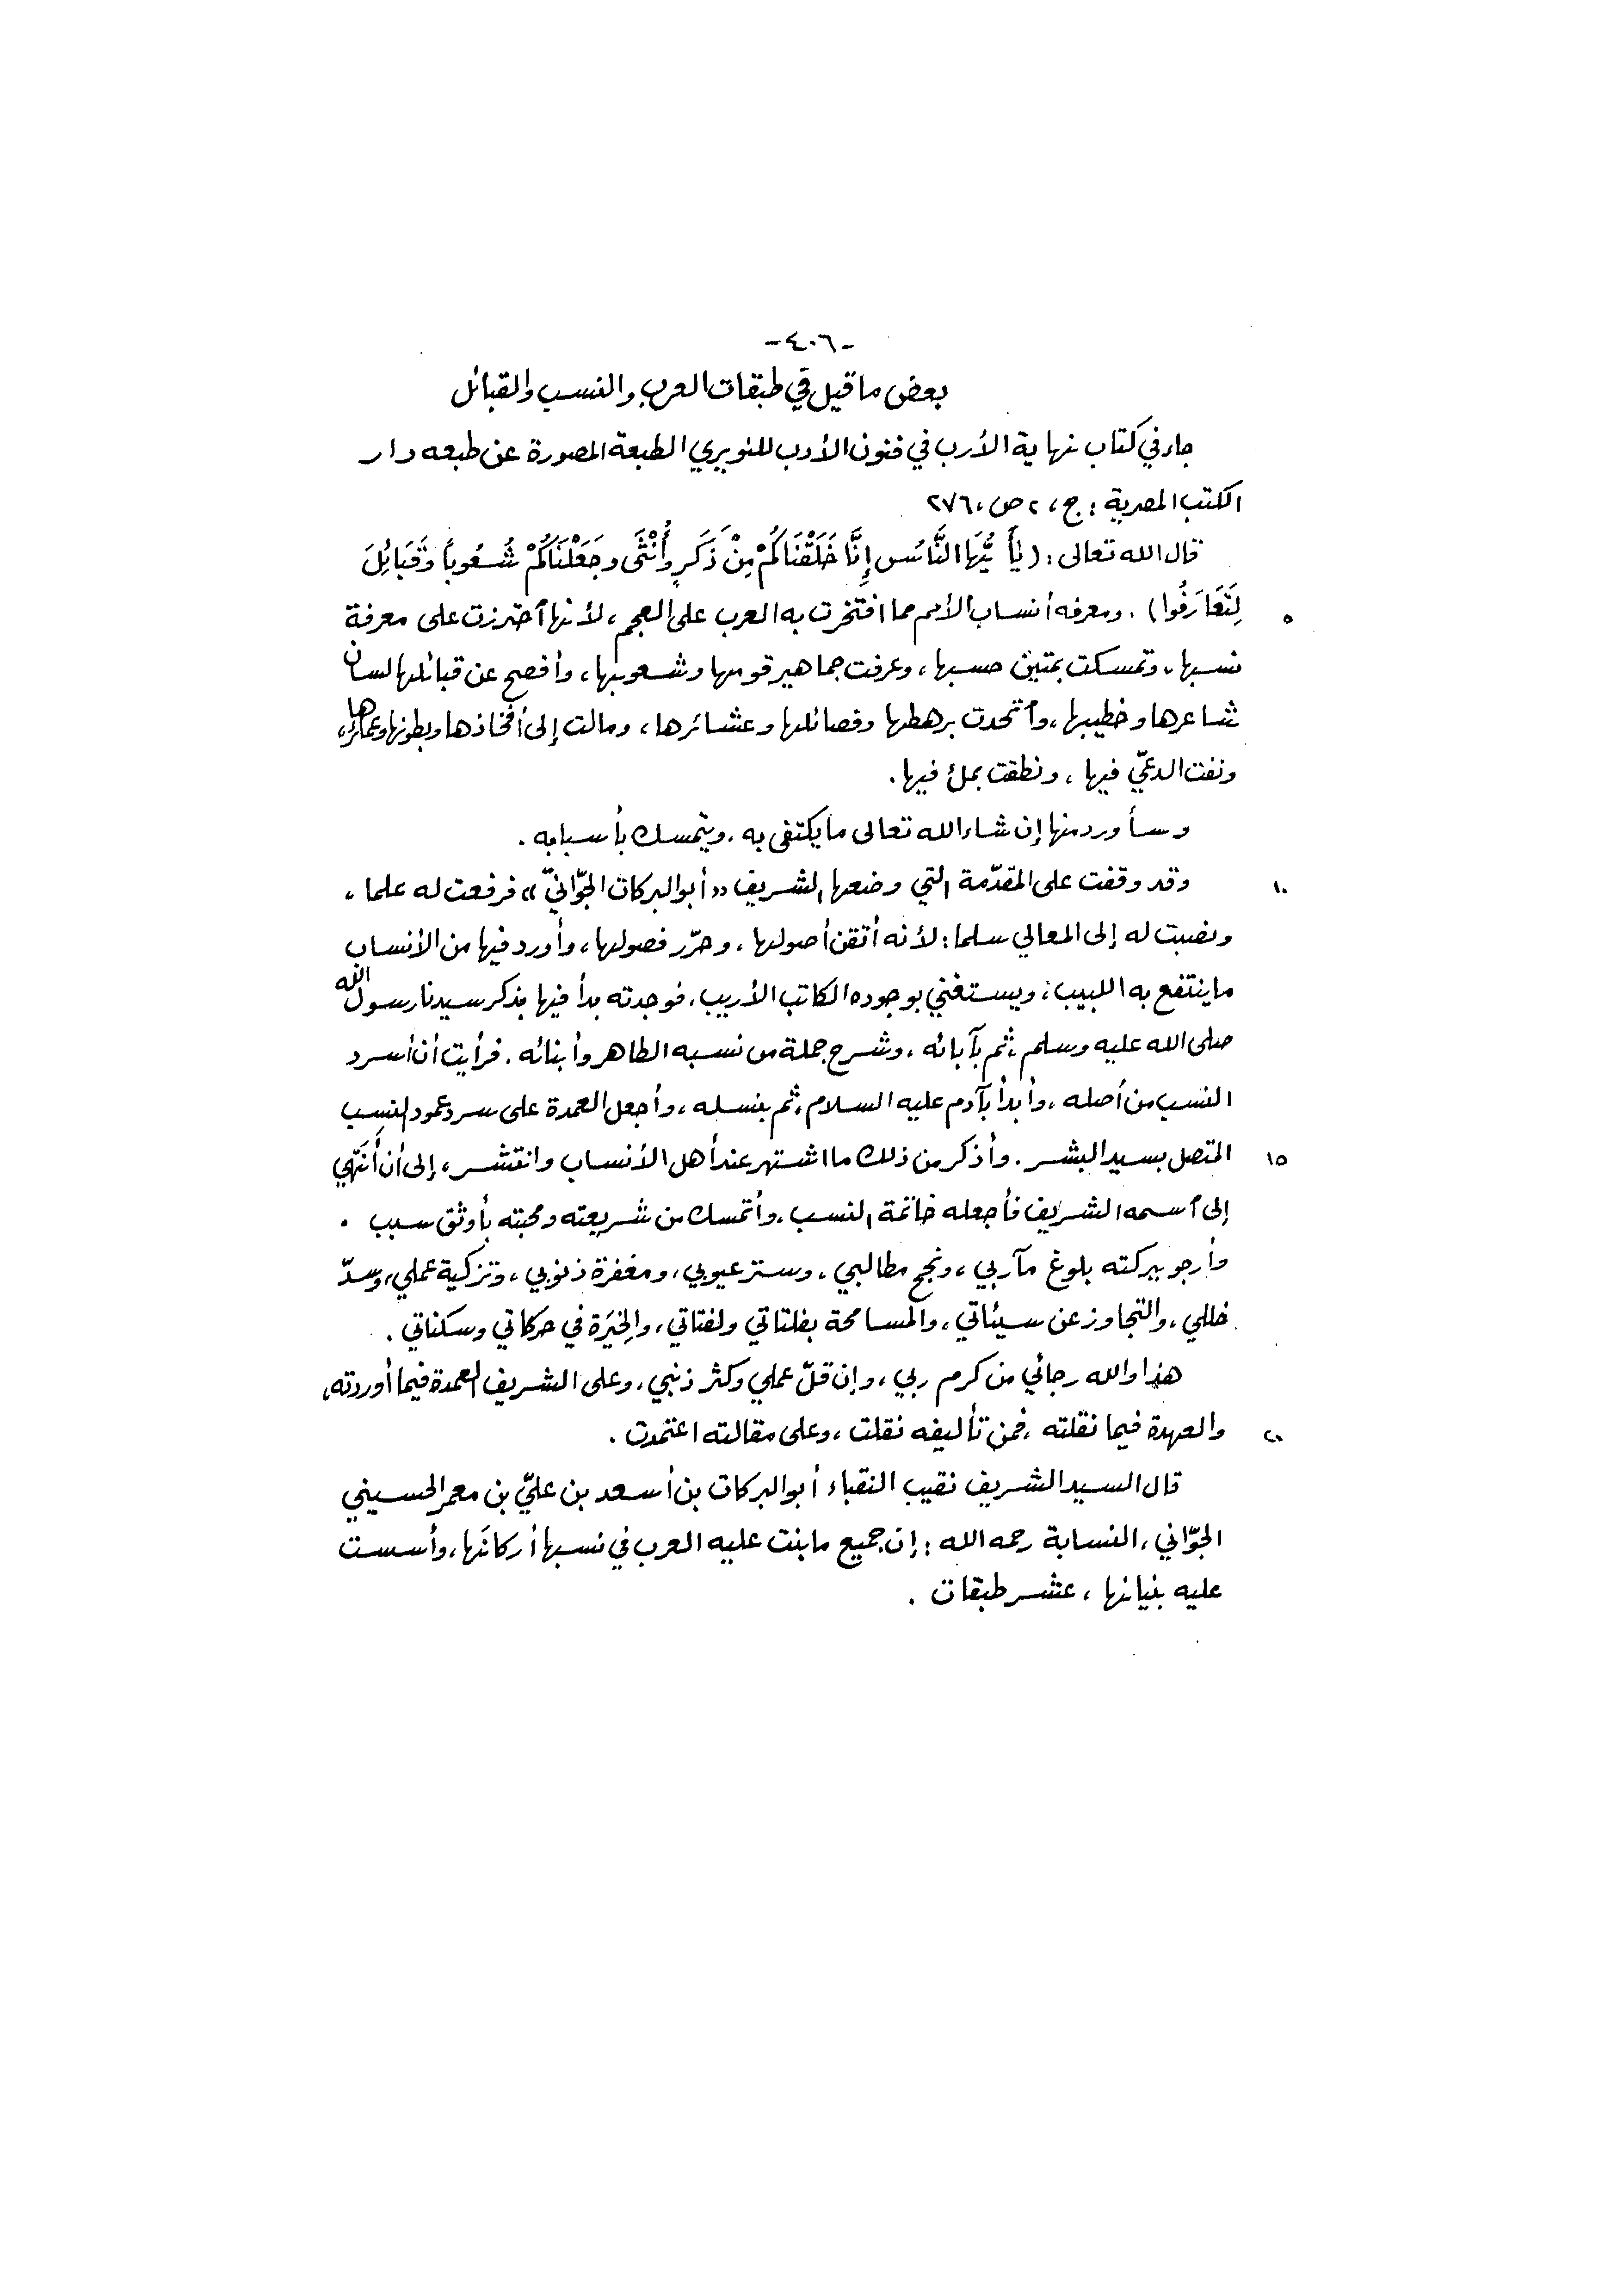 -٤٠٦-
بعض ما قيل في طبقات العرب والنسب والقبائل
جاء في كتاب نهاية الأرب في فنون الأدب للنويري الطبعة المصورة عن طبعه دار
الكتب المصرية : ج، ٢ ص، ٢٧٦
قال الله تعالى : (يٰأَيُّهَا النَّاسُ إِنَّا خَلَقْنَاكُمْ مِنْ ذَكَرٍ وأُنْثَى وجَعَلْنَاكُمْ شُعُوباً وَقَبَائِلَ
٥ لِتَعَارَفُوا) . ومعرفه أنساب الأمم مما افتخرت به العرب على العجم، لأنها ٱحترزت على معرفة
نسبها، وتمسكت بمتين حسبها، وعرفت جماهير قومها وشعوبها، وأفصح عن قبائلها لسان
شاعرها وخطيبها، وٱتحدت برهطها وفصائلها وعشائرها، ومالت إلى أفخاذها وبطونها وعمائرها،
ونفت الدعيّ فيها، ونطقت بملء فيها.
وسأورد منها إن شاء الله تعالى ما يكتفى به، ويتمسك بأسبابه .
١٠ وقد وقفت على المقدّمة التي وضعها الشريف «أبو البركات الجوّانيّ» فرفعت له علما،
ونصبت له إلى المعالي سلما: لأنه أتقن أصولها، وحرّر فصولها، وأورد فيها من الأنساب
ما ينتفع به اللبيب؛ ويستغني بوجوده الكاتب الأريب، فوجدته بدأ فيها بذكر سيدنا رسول الله
صلى الله عليه وسلم، ثم بآبائه، وشرح جملة من نسبه الطاهر وأبنائه. فرأيت أن أسرد
النسب من أصله، وأبدأ بآدم عليه السلام، ثم بنسله، وأجعل العمدة على سرد عمود النسب
١٥ المتصل بسيد البشر. وأذكر من ذلك ما اشتهر عند أهل الأنساب وانتشر، إلى أن أَنتَهِي
إلى ٱسمه الشريف فأجعله خاتمة النسب، وأتمسك من شريعته ومحبته بأوثق سبب .
وأرجو ببركته بلوغ مآربي، ونجح مطالبي، وستر عيوبي، ومغفرة ذنوبي، وتزكية عملي، وسدّ
خللي، والتجاوز عن سيئاتي، والمسامحة بفلتاتي ولفتاتي، والخِيَرة في حركاتي وسكناتي .
هذا والله رجائي من كرم ربي، وإن قلّ عملي وكثر ذنبي، وعلى الشريف العمدة فيما أوردته،
٢٠ والعهدة فيما نقلته، فمن تأليفه نقلت، وعلى مقالته اعتمدت .
قال السيد الشريف نقيب النقباء أبو البركات بن أسعد بن عليّ بن معمر الحسيني
الجوّاني، النسابة رحمه الله : إن جميع ما بنت عليه العرب في نسبها أركانَها، وأسست
عليه بنيانها، عشر طبقات .